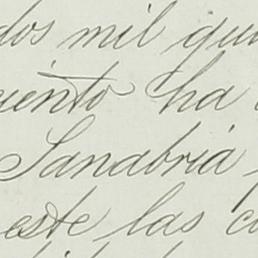 dos mil qui
ciento ha
Sanabria
este las c